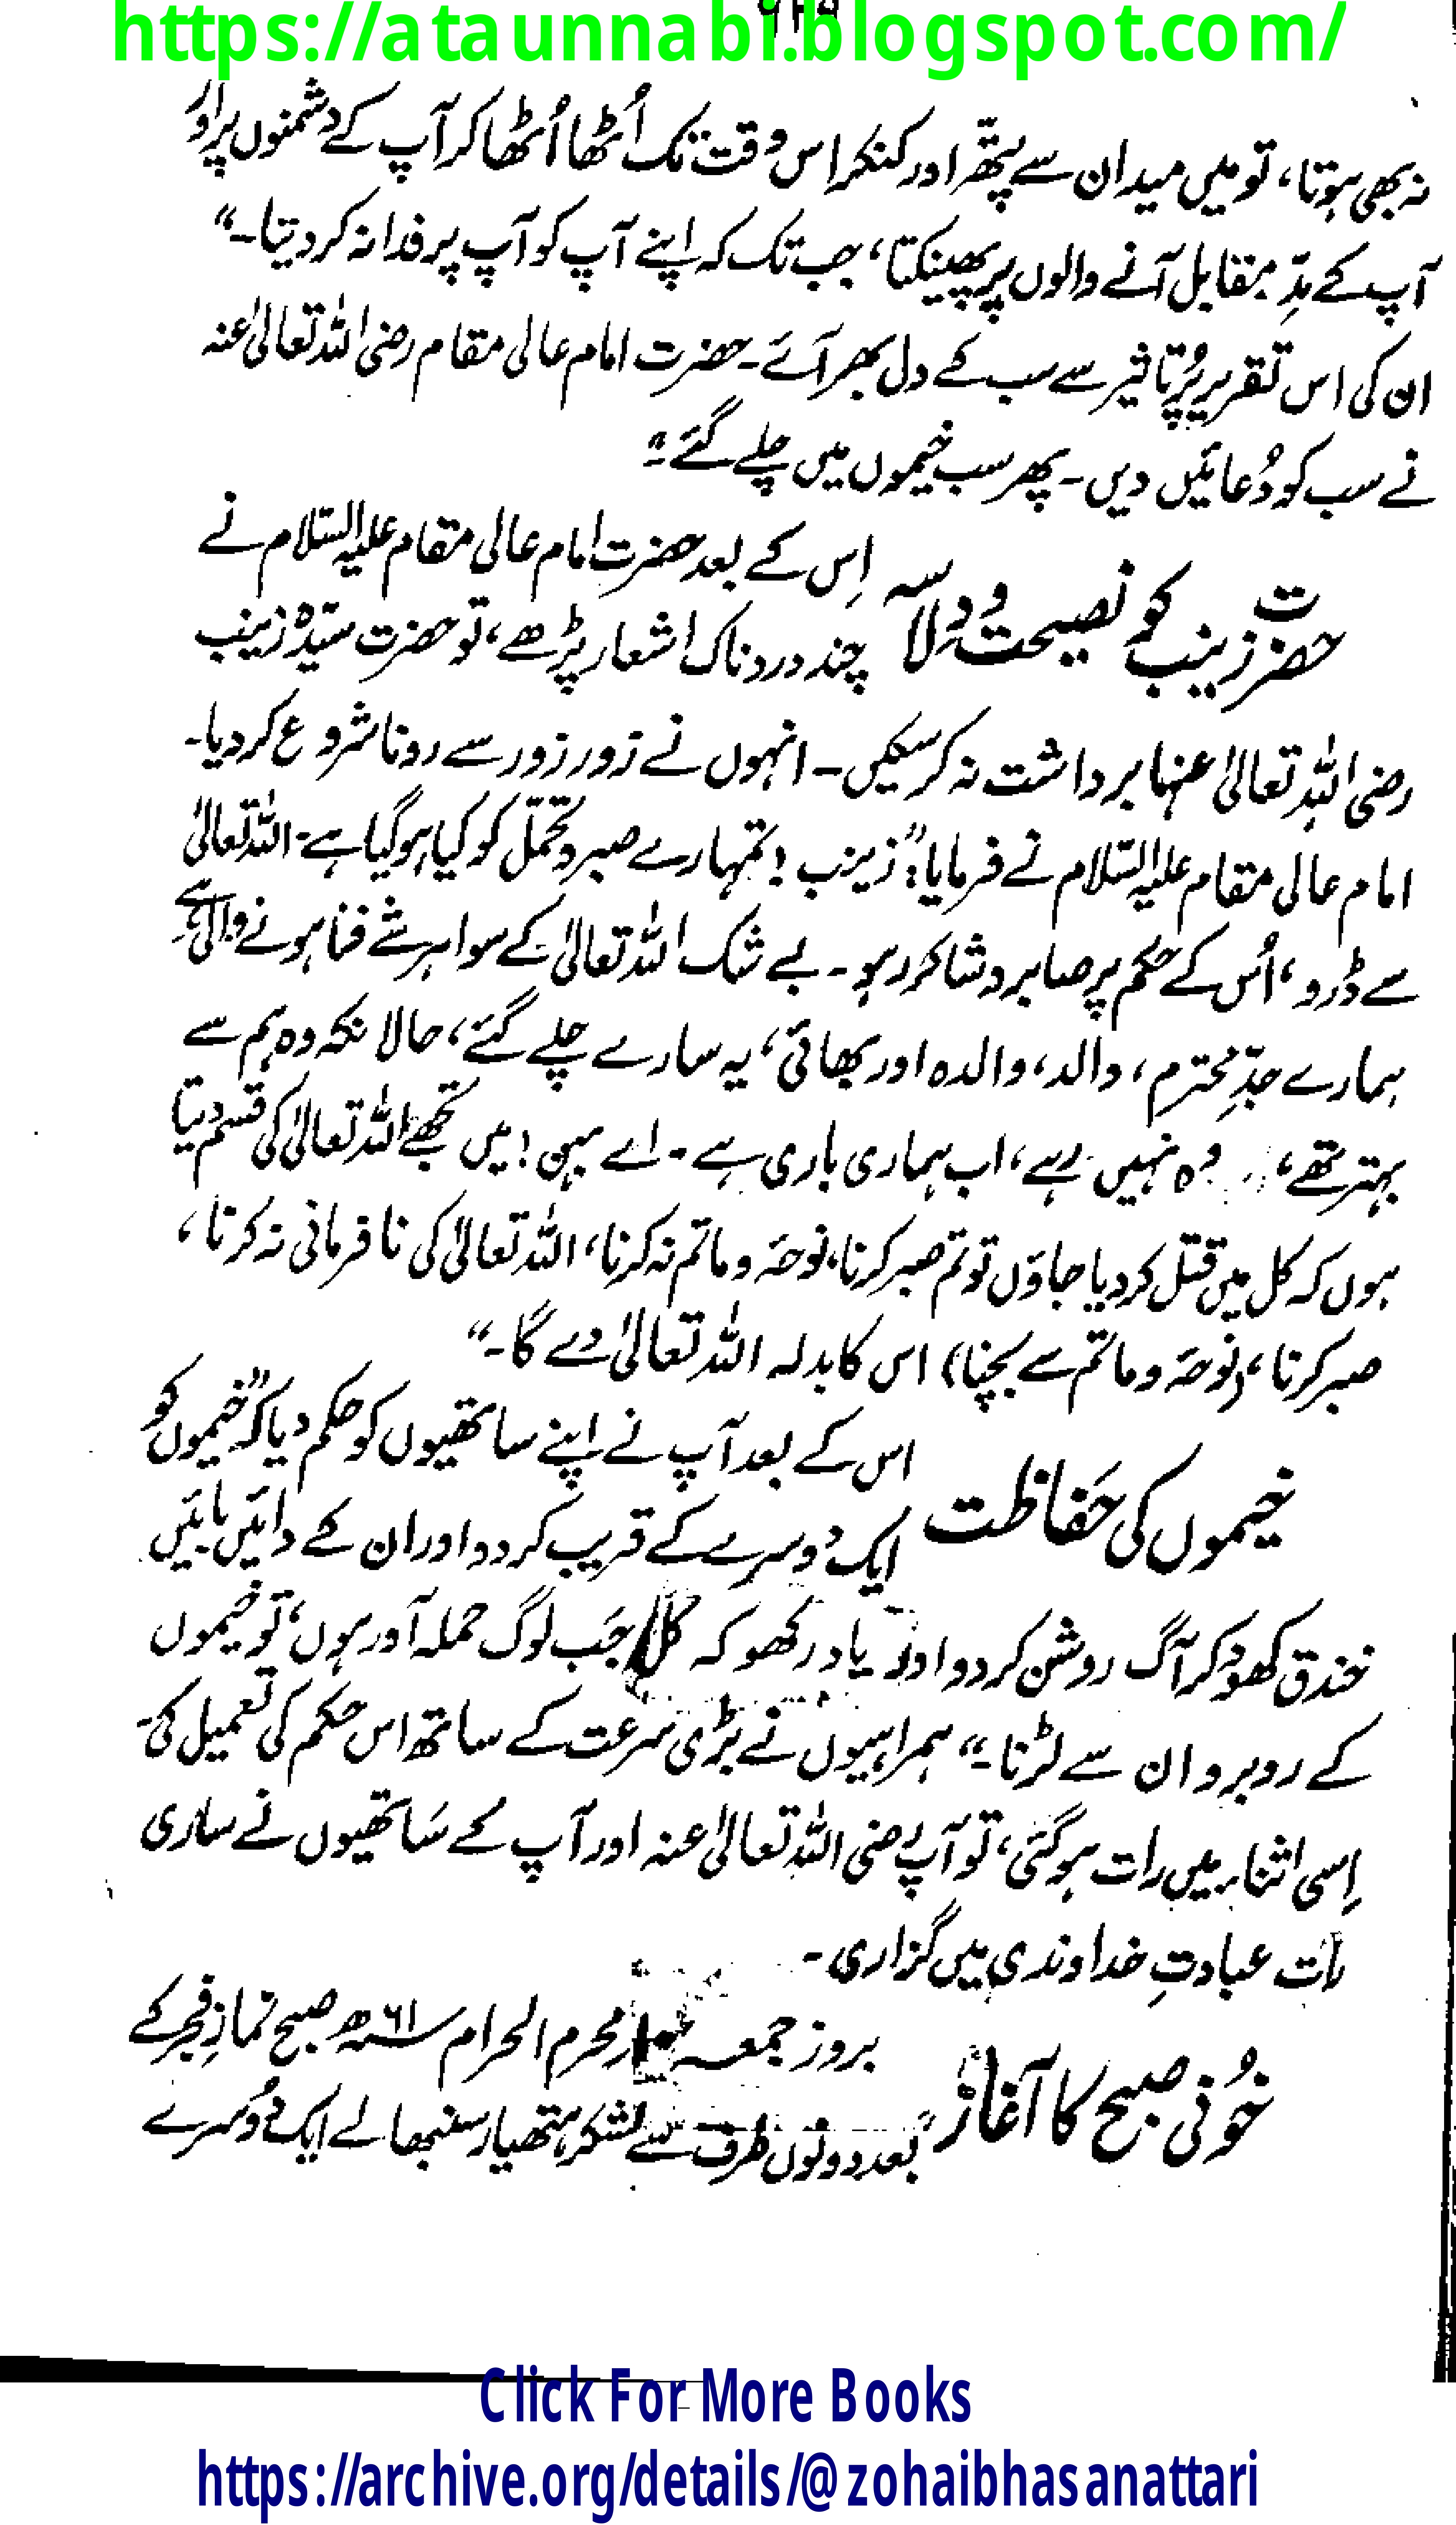 https://ataunnabi.blogspot.com/
نہ بھی ہوتا، تو میں میدان سے پتھّر اور کنکر اس وقت تک اُٹھا اُٹھا کر آپ کے دشمنوں پر اور
آپ کے مدِّ مقابل آنے والوں پر پھینکتا، جب تک کہ اپنے آپ کو آپ پر فدا نہ کر دیتا۔“
ان کی اس تقریرِ پُر تاثیر سے سب کے دل بھر آئے۔ حضرت امام عالی مقام رضی اللہ تعالیٰ عنہ
نے سب کو دُعائیں دیں۔ پھر سب خیموں میں چلے گئے۔“
حضرت زینب کو نصیحت و دِلاسہ
اِس کے بعد حضرت امام عالی مقام علیہ السّلام نے
چند دردناک اشعار پڑھے، تو حضرت سیّدہ زینب
رضی اللہ تعالیٰ عنہا برداشت نہ کر سکیں۔ انہوں نے زور زور سے رونا شروع کر دیا۔
امام عالی مقام علیہ السّلام نے فرمایا: ”زینب! تمہارے صبر و تحمّل کو کیا ہو گیا ہے۔ اللہ تعالیٰ
سے ڈرو، اُس کے حکم پر صابر و شاکر رہو۔ بے شک اللہ تعالیٰ کے سوا ہر شے فنا ہونے والی ہے
ہمارے جدِّ محترم، والد، والدہ اور بھائی، یہ سارے چلے گئے، حالانکہ وہ ہم سے
بہتر تھے، وہ نہیں رہے، اب ہماری باری ہے۔ اے بہن! میں تجھے اللہ تعالیٰ کی قسم دیتا
ہوں کہ کل میں قتل کر دیا جاؤں تو تم صبر کرنا، نوحہ و ماتم نہ کرنا، اللہ تعالیٰ کی نافرمانی نہ کرنا،
صبر کرنا، (نوحہ و ماتم سے بچنا) اس کا بدلہ اللہ تعالیٰ دے گا۔“
خیموں کی حَفاظت
اس کے بعد آپ نے اپنے ساتھیوں کو حکم دیا کہ ”خیموں کو
ایک دُوسرے کے قریب کر دو اور ان کے دائیں بائیں
خندق کھود کر آگ روشن کر دو اور یاد رکھو کہ کل جَب لوگ حملہ آور ہوں، تو خیموں
کے روبرو ان سے لڑنا۔“ ہمراہیوں نے بڑی سرعت کے ساتھ اس حکم کی تعمیل کی۔
اِسی اثناء میں رات ہو گئی، تو آپ رضی اللہ تعالیٰ عنہ اور آپ کے سَاتھیوں نے ساری
رات عبادتِ خداوندی میں گزاری۔
خُونی صبح کا آغاز
بروز جمعہ ۱۰ محرم الحرام ۶۱ھ صبح نمازِ فجر کے
بعد دونوں طرف سے لشکر ہتھیار سنبھالے ایک دُوسرے
Click For More Books
https://archive.org/details/@zohaibhasanattari